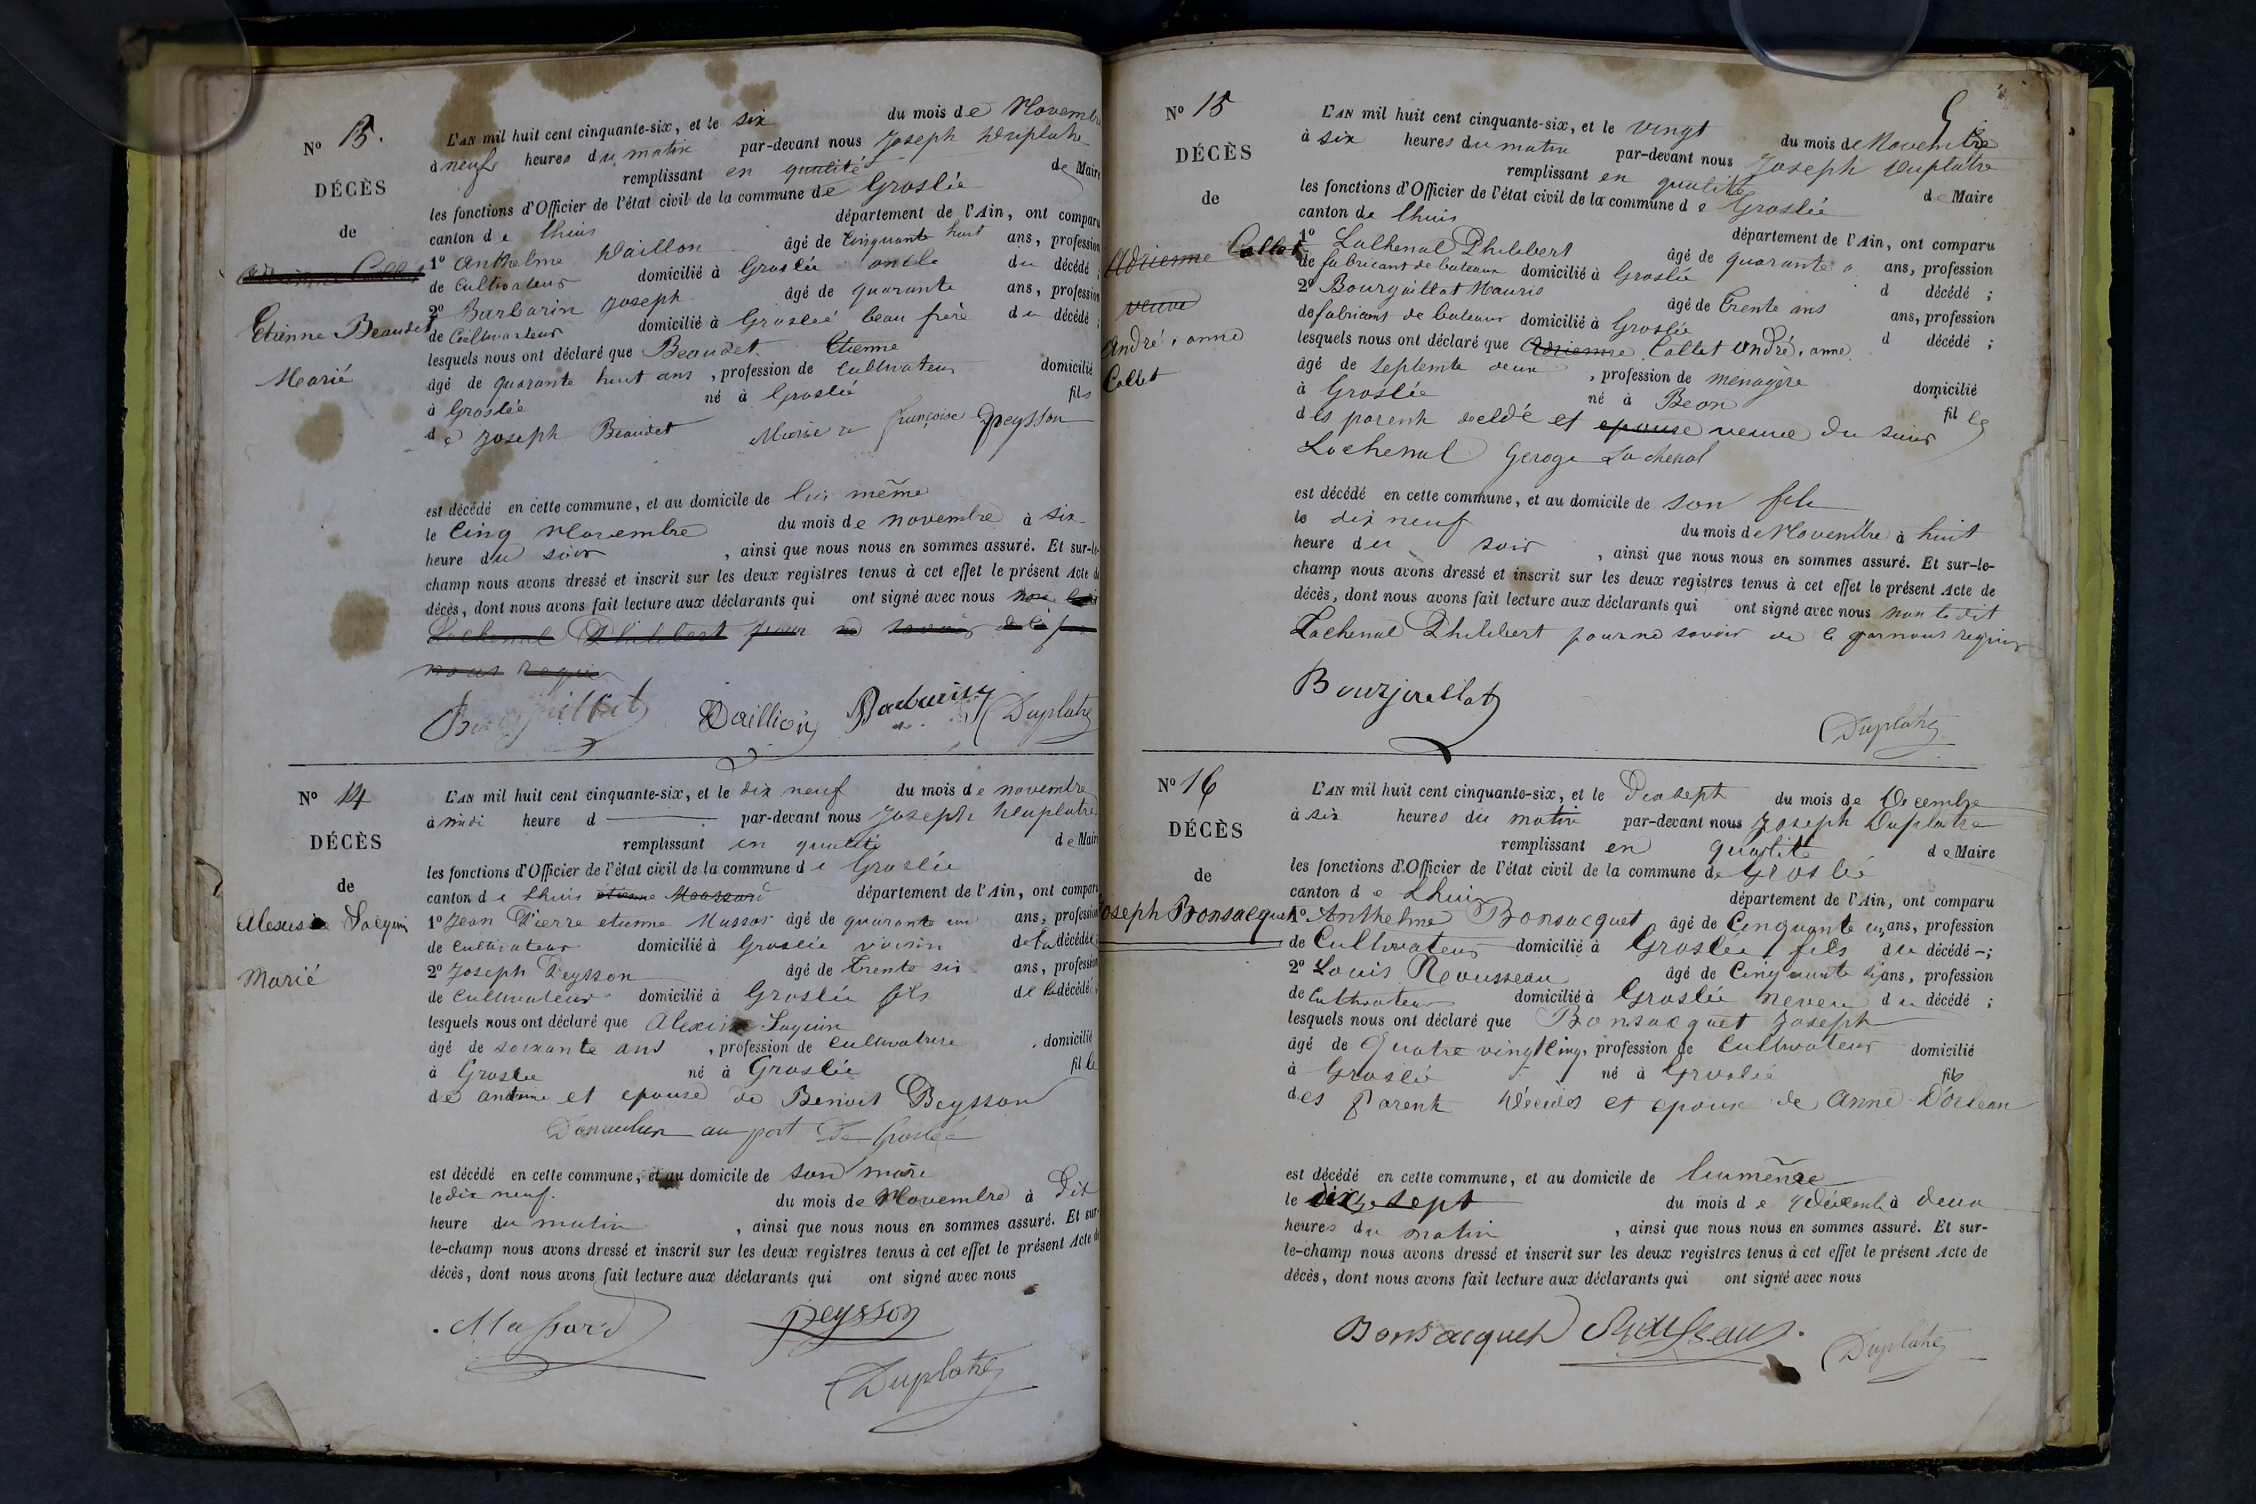 N° 13.
DÉCÈS
de
Etienne Beaudet
Marié
L'AN mil huit cent cinquante-six, et le six du mois de Novembre
à neuf heures du matin par-devant nous Joseph Duplatre
remplissant en qualité de Maire
les fonctions d'Officier de l'état civil de la commune de Groslée
canton de Lhuis département de l'Ain, ont comparu
1° Anthelme Daillon âgé de cinquante huit ans, profession
de Cultivateur domicilié à Groslée oncle du décédé ;
2° Barbarin Joseph âgé de quarante ans, profession
de Cultivateur domicilié à Groslée beau frère du décédé ;
lesquels nous ont déclaré que Beaudet Etienne
âgé de quarante huit ans, profession de Cultivateur domicilié
à Groslée né à Groslée fils
de Joseph Beaudet Marie françoise Peysson
est décédé en cette commune, et au domicile de lui même
le Cinq Novembre du mois de novembre à six
heure du soir, ainsi que nous nous en sommes assuré. Et sur-le-
champ nous avons dressé et inscrit sur les deux registres tenus à cet effet le présent Acte de
décès, dont nous avons fait lecture aux déclarants qui ont signé avec nous
Lachenal Philibert pour ne savoir de ce par
nous requis
Bourjaillat Daillion Barbarin Duplatre
N° 14
DÉCÈS
de
Alexise Saquin
Marié
L'AN mil huit cent cinquante-six, et le dix neuf du mois de novembre
à midi heure d par-devant nous Joseph Duplatre
remplissant en qualité de Maire
les fonctions d'Officier de l'état civil de la commune de Groslée
canton de Lhuis etienne Massard département de l'Ain, ont comparu
1° Jean Pierre etienne Massar âgé de quarante un ans, profession
de Cultivateur domicilié à Groslée voisin de la décédée ;
2° Joseph Peysson âgé de trente six ans, profession
de Cultivateur domicilié à Groslée fils de la décédé ;
lesquels nous ont déclaré que Alexise Saquin
âgé de soixante ans, profession de Cultivatrice domicilié
à Groslée né à Groslée fille
de antoine et epouse de Benoit Peysson
au port de Groslée
est décédé en cette commune, et au domicile de son mari
le dix neuf. du mois de Novembre à Dix
heure du matin, ainsi que nous nous en sommes assuré. Et sur-
le-champ nous avons dressé et inscrit sur les deux registres tenus à cet effet le présent Acte de
décès, dont nous avons fait lecture aux déclarants qui ont signé avec nous
Massard Peysson
Duplatre
N° 15
DÉCÈS
de
Adrienne Collet
veuve
André anne
Collet
L'AN mil huit cent cinquante-six, et le vingt du mois de Novembre
à six heures du matin par-devant nous Joseph Duplatre
remplissant en qualité de Maire
les fonctions d'Officier de l'état civil de la commune de Groslée
canton de Lhuis département de l'Ain, ont comparu
1° Lachenal Philibert âgé de quarante ans, profession
de fabricant de bateaux domicilié à Groslée d décédé ;
2° Bourgaillat Mauris âgé de trente ans ans, profession
de fabricant de bateaux domicilié à Groslée d décédé ;
lesquels nous ont déclaré que Adrienne Collet André anne
âgé de septente deux, profession de menagère domicilié
à Groslée né à Beon fille
des parent et epouse veuve du sieur
Lachenal George Lachenal
est décédé en cette commune, et au domicile de son fils
le dix neuf du mois de Novembre à huit
heure du soir, ainsi que nous nous en sommes assuré. Et sur-le-
champ nous avons dressé et inscrit sur les deux registres tenus à cet effet le présent Acte de
décès, dont nous avons fait lecture aux déclarants qui ont signé avec nous non le dit
Lachenal Philibert pour ne savoir de ce par nous requis
Bourjaillat
Duplatre
N° 16
DÉCÈS
de
Joseph Bonsacquet
L'AN mil huit cent cinquante-six, et le Dixsept du mois de Decembre
à six heures du matin par-devant nous Joseph Duplatre
remplissant en qualité de Maire
les fonctions d'Officier de l'état civil de la commune de Groslée
canton de Lhuis département de l'Ain, ont comparu
1° Anthelme Bonsacquet âgé de Cinquante un ans, profession
de Cultivateur domicilié à Groslée fils du décédé ;
2° Louis Rousseau âgé de Cinquante six ans, profession
de Cultivateur domicilié à Groslée neveu du décédé ;
lesquels nous ont déclaré que Bonsacquet Joseph
âgé de Quatre vingt Cinq, profession de Cultivateur domicilié
à Groslée né à Groslée fils
des Parent Décédés et epoux de Anne
est décédé en cette commune, et au domicile de lui même
le dix sept du mois de Décembre à deux
heures du matin, ainsi que nous nous en sommes assuré. Et sur-
le-champ nous avons dressé et inscrit sur les deux registres tenus à cet effet le présent Acte de
décès, dont nous avons fait lecture aux déclarants qui ont signé avec nous
Bonsacquet Rousseau Duplatre